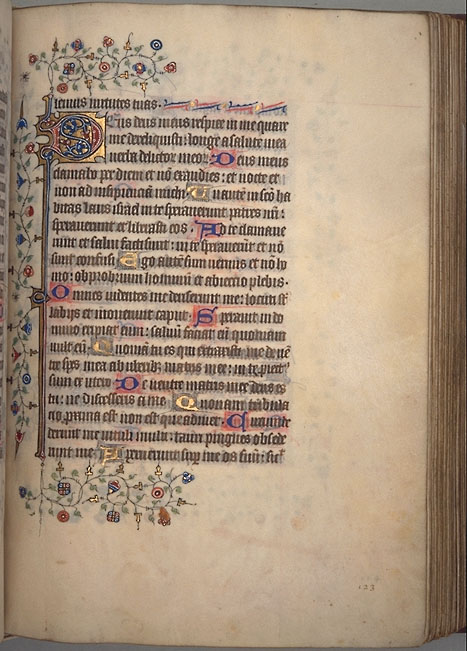 lemus virtutes tuas.
Deus deus meus respice in me quare
me dereliquisti: longe a salute mea
verba delictor meor. Deus meus
clamabo per diem et nō exaudies: et nocte et
non ad insipienciā michi. Tu autē in scō ha
bitas laus isrl̄ in te speraverunt patres nr̄i:
speraverunt et liberasti eos. Ad te clamave
runt et salvi facti sunt: in te speraverūt et nō
sunt confusi. Ego autē sum vermis et nō ho
mo: obprobrium hominum et abiectio plebis.
Omnes videntes me deriserunt me: locuti st̄
labijs et moverunt caput. Speravit in do
mino eripiat eum: salvū faciat eū quoniam
vult eū. Quoniā tu es qui extraxisti me de vē
tre spes mea ab uberib; matris mee: in te proiect'
sum ex utero. De ventre matris mee deus es
tu: ne discesseris a me. Quoniam tribula
cio proxima est: non est qui adiuvet. Circumde
derunt me vituli multi: tauri pingues obsede
runt me. Aperuerunt sup̄ me os suū: sic̄
123